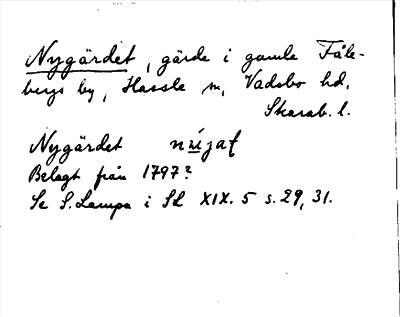 Nygärdet, gärde i gamla Fåle-
bergs by, Hassle sn, Vadsbo hd,
Skarab. l.
Nygärdet nújat
Belagt från 1797?
Se S. Lampa i SL XIX. 5 s. 29, 31.